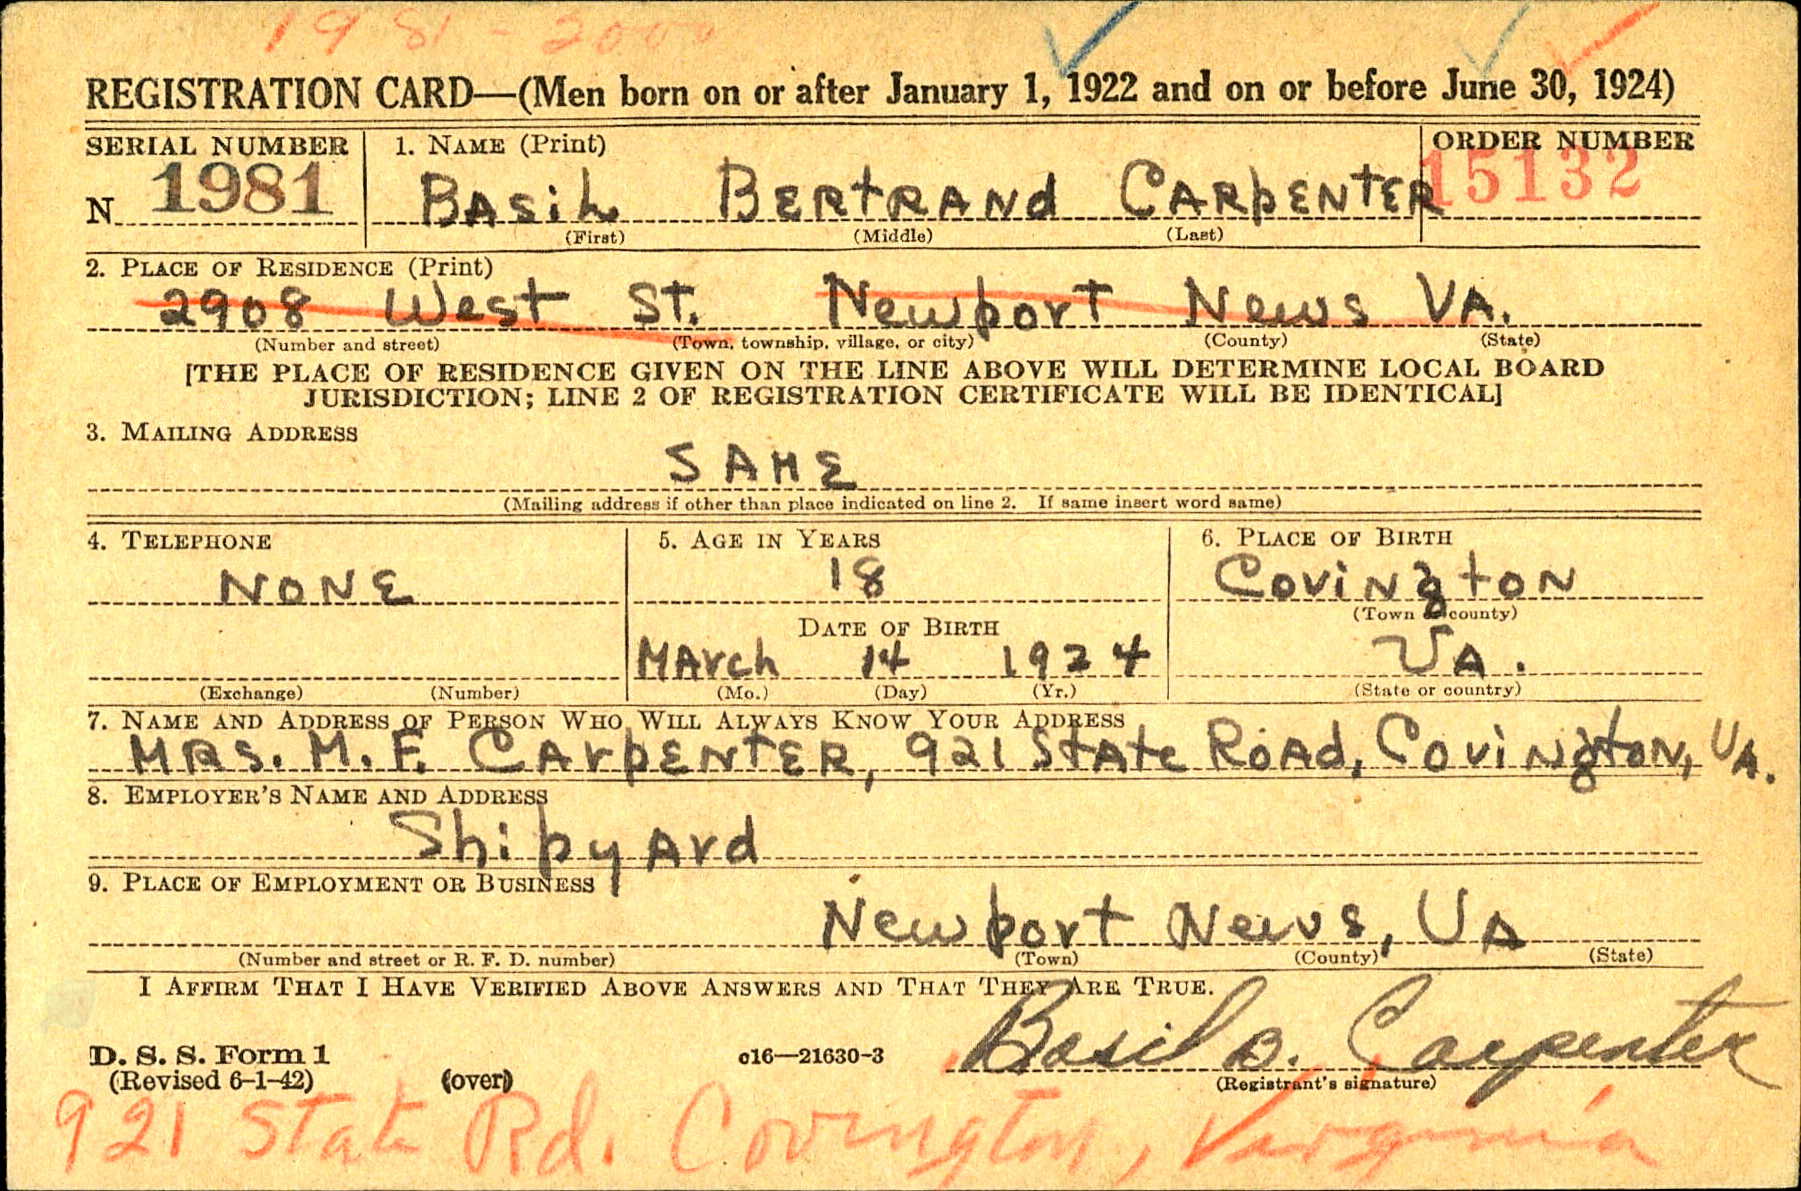 1981 - 2000
REGISTRATION CARD—(Men born on or after January 1, 1922 and on or before June 30, 1924)
SERIAL NUMBER
1. NAME (Print)
ORDER NUMBER
N 1981
BASiL BERtRANd CARpENtER
15132
(First) (Middle) (Last)
2. PLACE OF RESIDENCE (Print)
2908 West St. Newport News VA.
(Number and street) (Town, township, village, or city) (County) (State)
[THE PLACE OF RESIDENCE GIVEN ON THE LINE ABOVE WILL DETERMINE LOCAL BOARD
JURISDICTION; LINE 2 OF REGISTRATION CERTIFICATE WILL BE IDENTICAL]
3. MAILING ADDRESS
SAME
(Mailing address if other than place indicated on line 2. If same insert word same)
4. TELEPHONE
5. AGE IN YEARS
6. PLACE OF BIRTH
NONE
18
CoviNgtoN
(Town or county)
DATE OF BIRTH
MArch 14 1924
VA.
(Exchange) (Number)
(Mo.) (Day) (Yr.)
(State or country)
7. NAME AND ADDRESS OF PERSON WHO WILL ALWAYS KNOW YOUR ADDRESS
MRS. M. F. CArpENtER, 921 StAte RoAd, CoviNgtoN, VA.
8. EMPLOYER'S NAME AND ADDRESS
ShipyArd
9. PLACE OF EMPLOYMENT OR BUSINESS
Newport News, VA
(Number and street or R. F. D. number) (Town) (County) (State)
I AFFIRM THAT I HAVE VERIFIED ABOVE ANSWERS AND THAT THEY ARE TRUE.
Basil B. Carpenter
D. S. S. Form 1
(Revised 6-1-42) (over) c16—21630-3
(Registrant's signature)
921 State Rd. Covington, Virginia